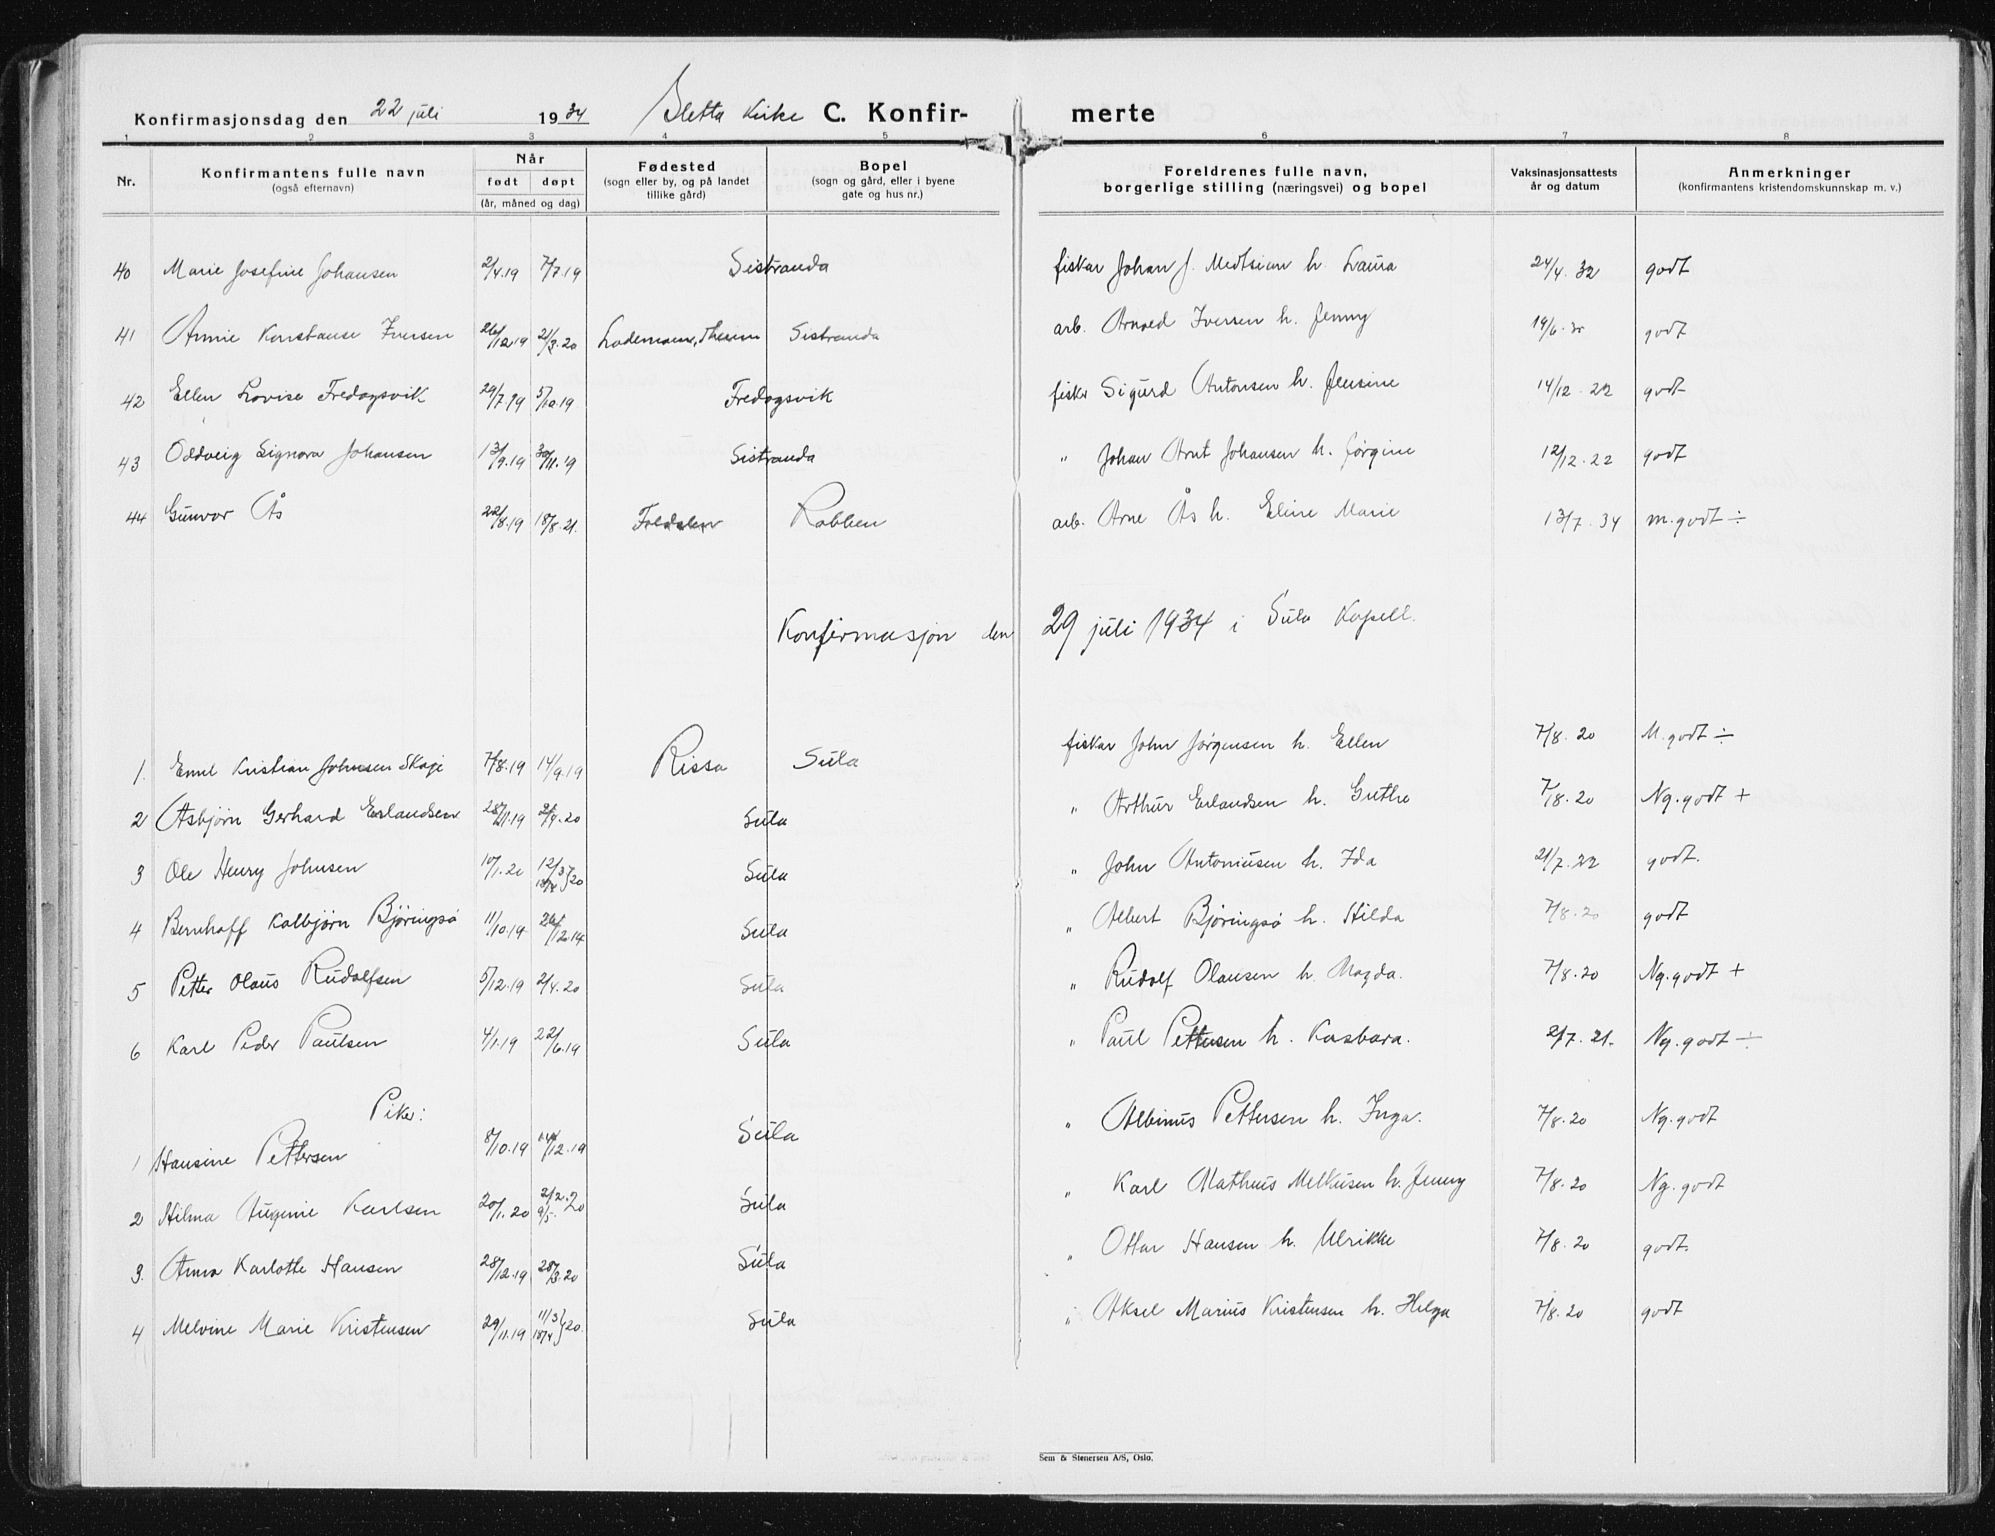 Konfirmasjonsdag den 22 juli 1934 Sletta Kirke C. Konfir- merte
1 2 3 4 5 6 7 8
Nr. Konfirmantens fulle navn (også efternavn) Når født døpt (år, måned og dag) Fødested (sogn eller by, og på landet tillike gård) Bopel (sogn og gård, eller i byene gate og hus nr.) Foreldrenes fulle navn, borgerlige stilling (næringsvei) og bopel Vaksinasjonsattests år og datum Anmerkninger (konfirmantens kristendomskunnskap m. v.)
40 Marie Josefine Johansen 2/4.19 7/7.19 Sistranda fisker Johan J. h. Laura 24/4.32 godt
41 Annie Konstanse Iversen 26/12.19 21/3.20 Lademoen, Sistranda arb. Arnold Iversen h. Jenny 19/6. godt
42 Ellen Lovise Fredagsvik 29/7.19 5/10.19 Fredagsvik fisker Sigurd Antonsen h. Jensine 14/12.22 godt
43 Oddveig Signora Johansen 13/9.19 30/11.19 Sistranda " Johan Arnt Johansen h. Jørgine 12/12.22 godt
44 Gunvor Ås 22/8.19 18/8.21. Rabben arb. Arne Ås h. Eline Marie 13/7.34 m.godt ÷
Konfirmasjon den 29 juli 1934 i Sula Kapell.
1. Emil Kristian Johnsen Skaje 7/8.19 14/9.19 Rissa Sula fisker John Jørgensen h. Ellen 7/8.20 M.godt ÷
2 Asbjørn Gerhard Erlandsen 28/11.19 2/4.20 Sula " Arthur Erlandsen h. Guthe 7/8.20 Ng.godt +
3 Ole Henry Johnsen 10/1.20 12/3 18/4 }20 Sula " John Antoniusen h. Ida 21/7.22 godt.
4 Bernhoff Kolbjørn Bjøringsø 11/10.19 26/12.19 Sula " Albert Bjøringsø h. Hilda 7/8.20 godt
5 Petter Olaus Rudolfsen 5/12.19 2/4.20 Sula " Rudolf Olausen h. Magda. 7/8.20 Ng.godt +
6 Karl Peder Paulsen 4/1.19 22/6.19 Sula " Paul Pettersen h. Kasbara. 2/7.21. Ng.godt ÷
Piker:
1 Hansine Pettersen 8/10.19 /12.19 Sula " Albinus Pettersen h. Inga. 7/8.20 Ng.godt
2 Hilma Augenie Karlsen 20/1.20 2/2 9/5 .20 Sula " Karl Matheus Melkiusen h. Jenny 7/8.20 Ng.godt
3. Anna Karlotte Hansen 28/12.19 28/3.20 Sula " Ottar Hansen h. Ulrikke 7/8.20 godt.
4 Melvine Marie Kristensen 29/11.19 11/3 18/4 }20. Sula " Aksel Marius Kristensen h. Helga 7/8.20 godt
Sem & Stenersen A/S, Oslo.